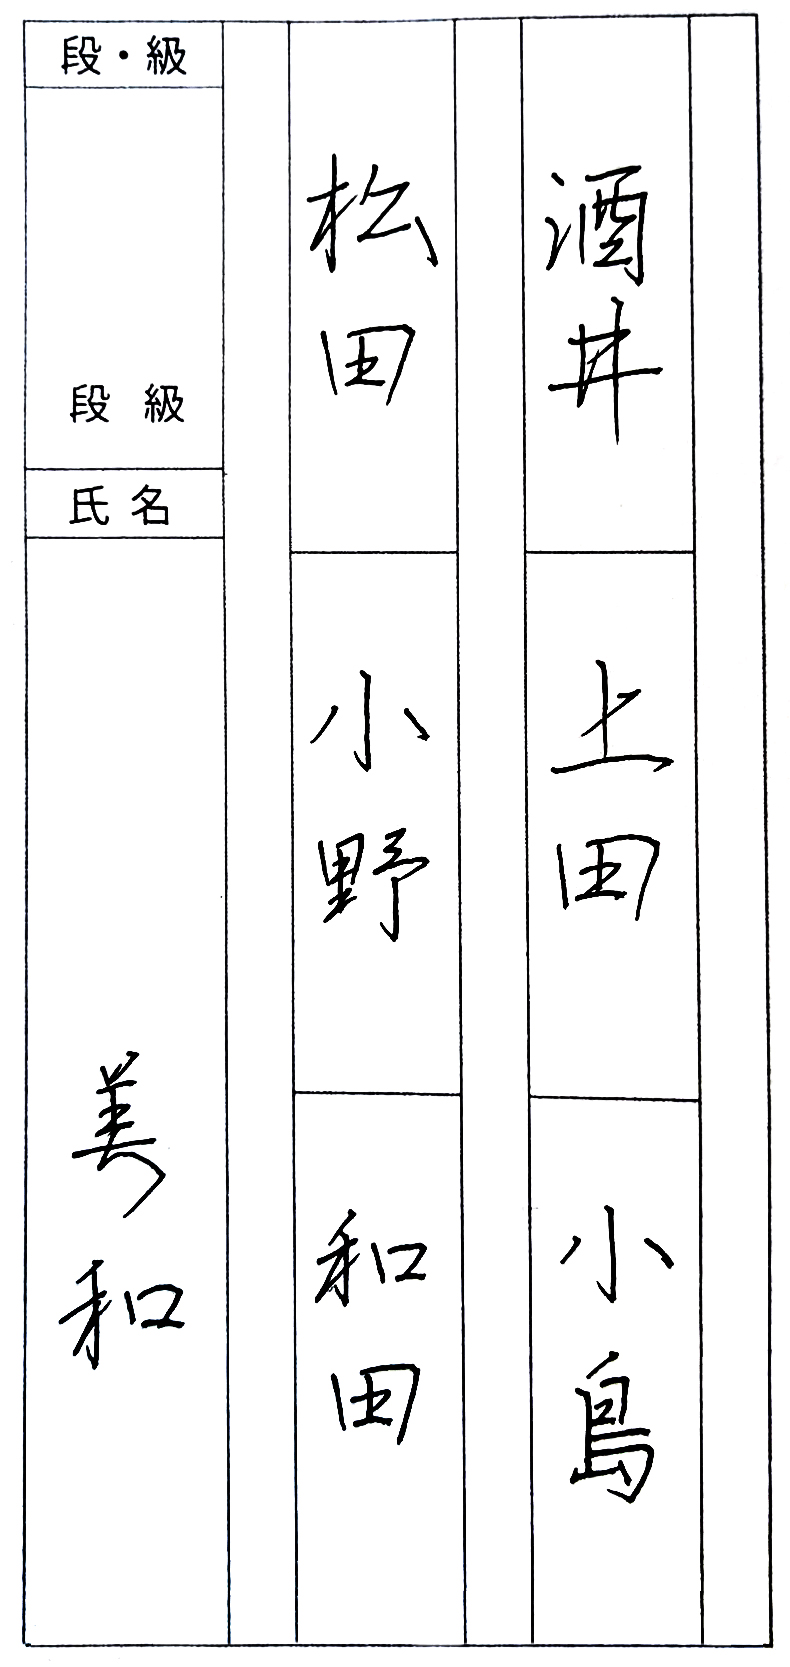 酒井
上田
小島
松田
小野
和田
段・級
段 級
氏名
美和